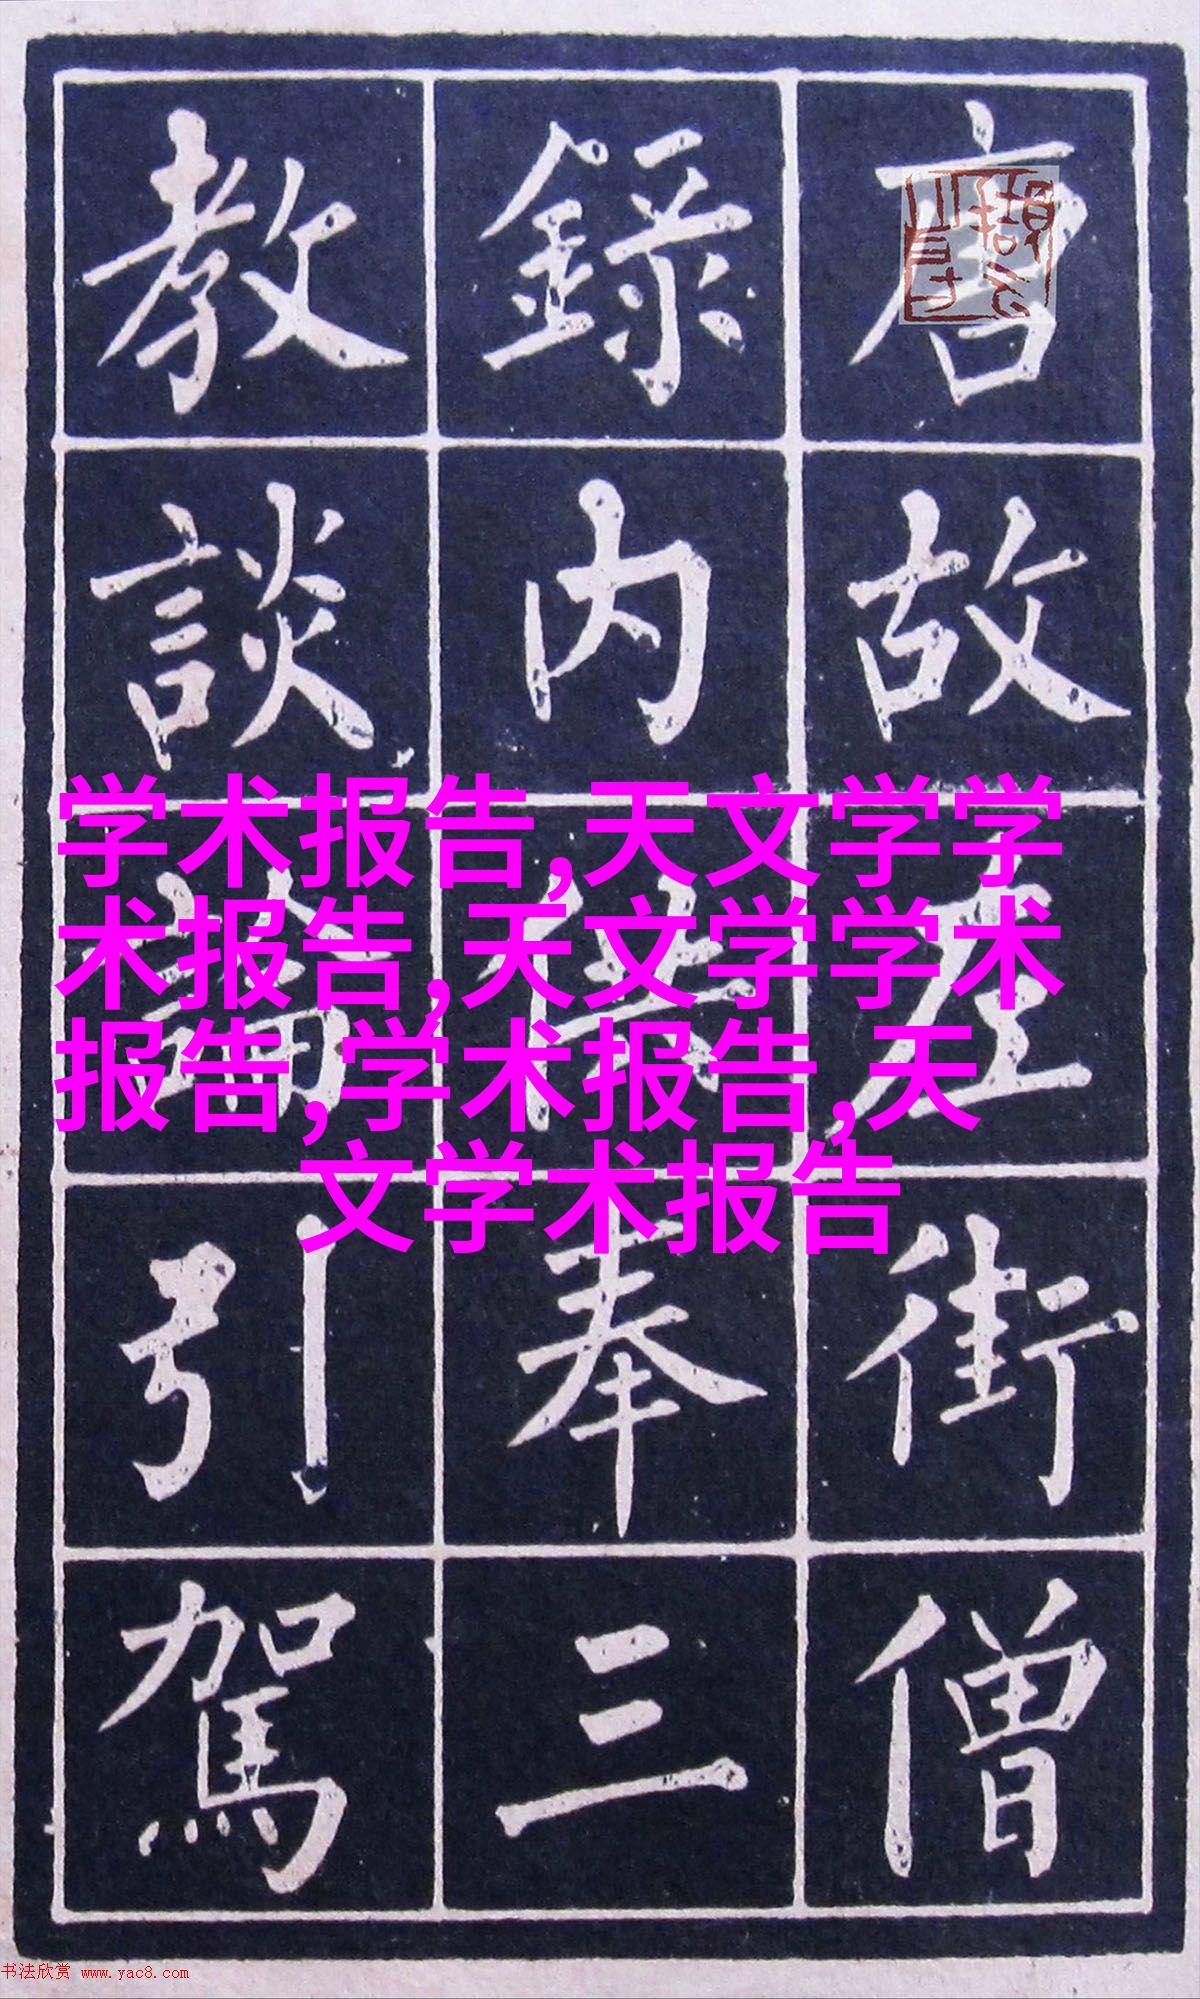 唐故左街僧
錄內供奉三
教談論引駕
学术报告,天文学学
术报告,天文学学术
报告,学术报告,天
文学术报告
书法欣赏 www.yac8.com